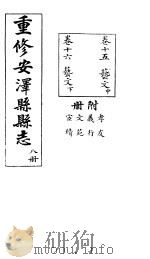 卷十五 藝文中
卷十六 藝文下
附冊
孝友
義行
文苑
宦績
重修安澤縣縣志 八冊